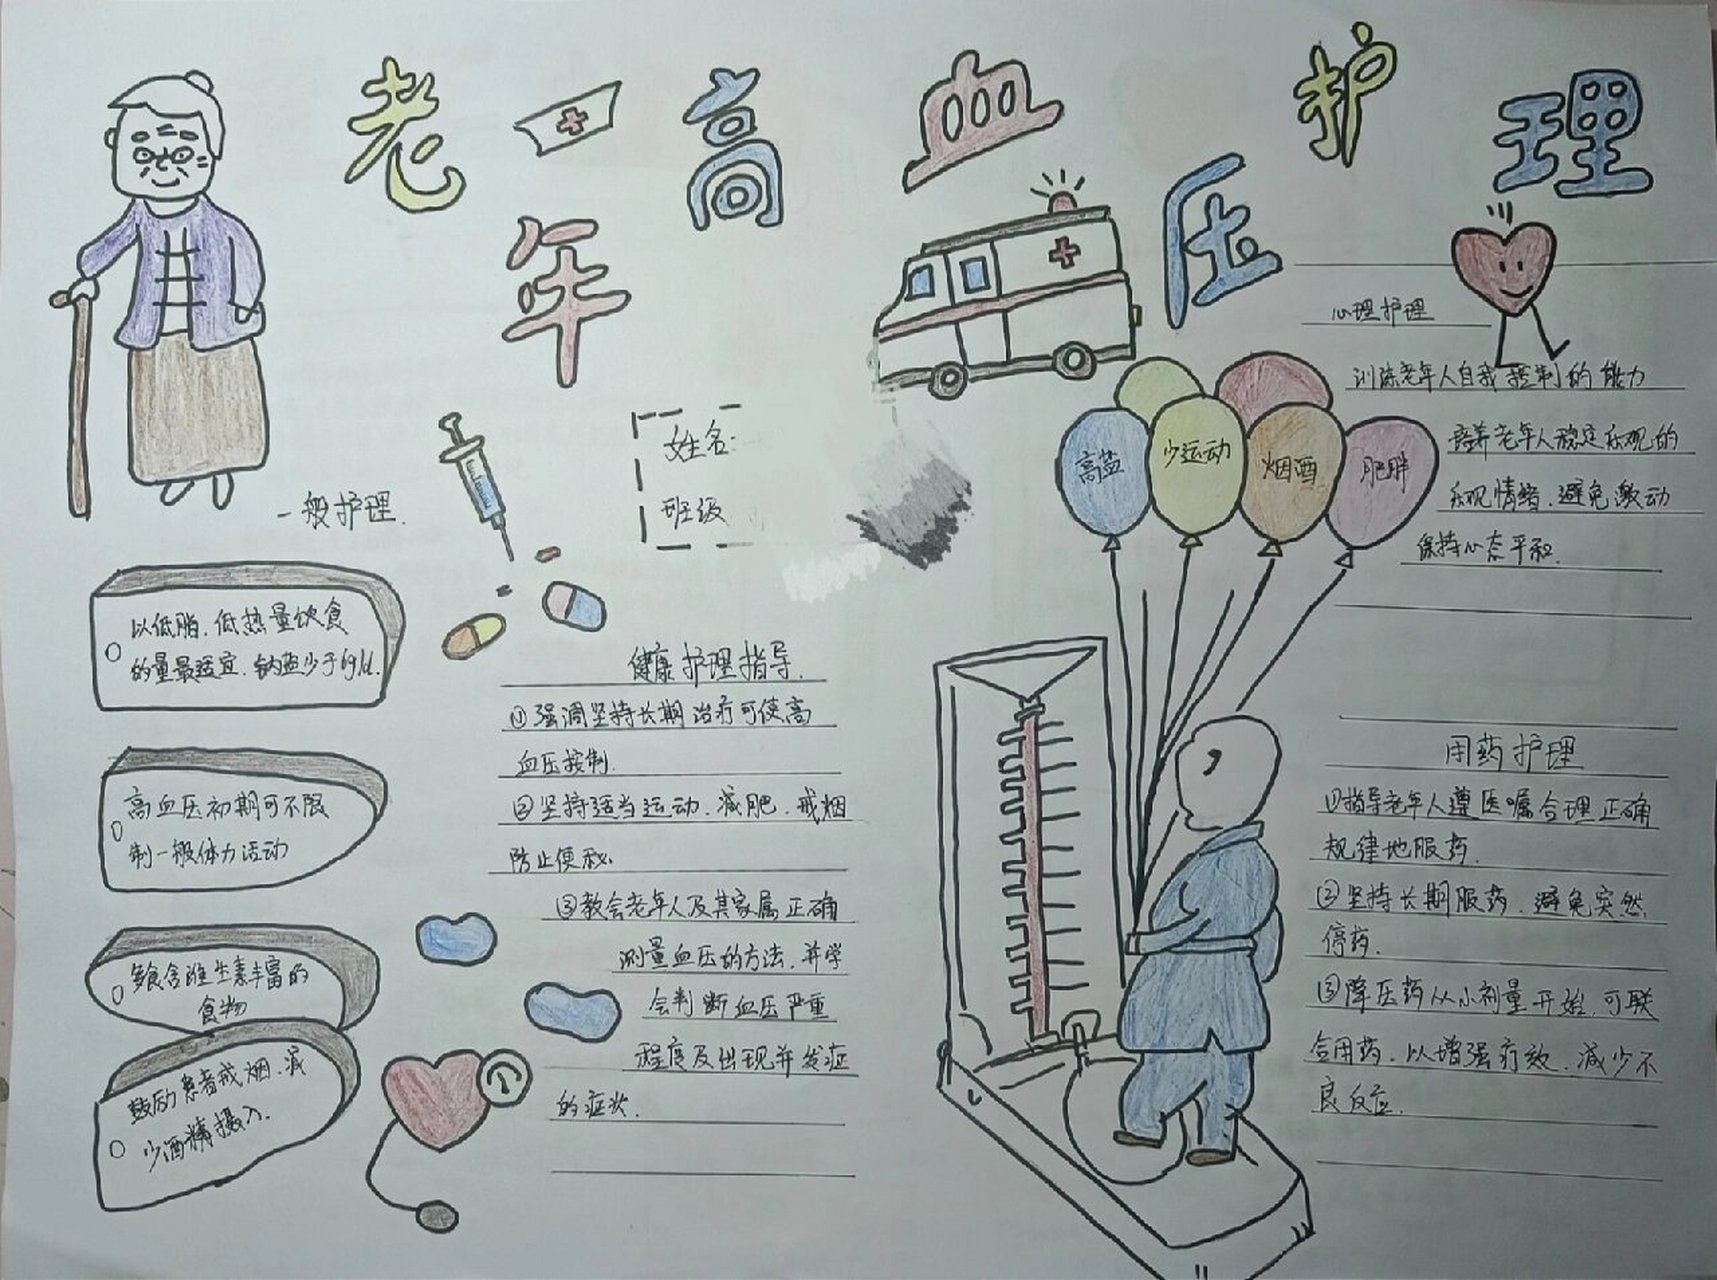 老年高血压护理
姓名:
班级
一般护理.
以低脂.低热量饮食
的量最适宜.钠盐少于6g/d.
高血压初期可不限
制一般体力活动
多食含维生素丰富的
食物
鼓励患者戒烟.减
少酒精摄入.
健康护理指导.
①强调坚持长期治疗可使高
血压控制.
②坚持适当运动.减肥.戒烟
防止便秘.
③教会老年人及其家属正确
测量血压的方法.并学
会判断血压严重
程度及出现并发症
的症状.
高盐
少运动
烟酒
肥胖
心理护理
训练老年人自我控制的能力
培养老年人稳定乐观的
乐观情绪.避免激动
保持心态平和.
用药护理
①指导老年人遵医嘱合理正确
规律地服药.
②坚持长期服药.避免突然
停药.
③降压药从小剂量开始.可联
合用药.以增强疗效.减少不
良反应.